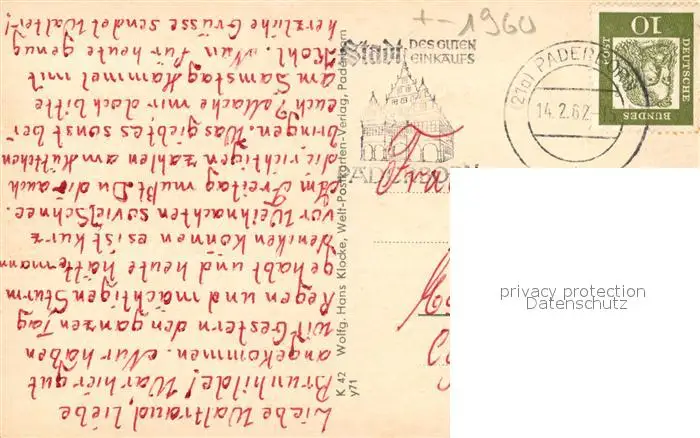 Liebe Waltraud, liebe
Brunhilde! War hier gut
angekommen. Nur haben
wir Gestern den ganzen Tag
Regen und mächtigen Sturm
gehabt und heute hätte mann
denken können es ist kurz
vor Weihnachten soviel Schnee.
Am Freitag mußt Du dir auch
die richtigen Zahlen am Kärtchen
bringen. Was giebt es sonst bei
euch? Mache mir doch bitte
am Samstag Hammel mit
Kohl. Nun für heute genug
herzliche Grüsse sendet Walter!
+- 1960
Stadt DES GUTEN
EINKAUFS
PADERBORN
(21a) PADERBORN
14.2.62
10
DEUTSCHE
BUNDESPOST
K 42 Wolfg. Hans Klocke, Welt-Postkarten-Verlag, Paderborn
y71
privacy protection
Datenschutz